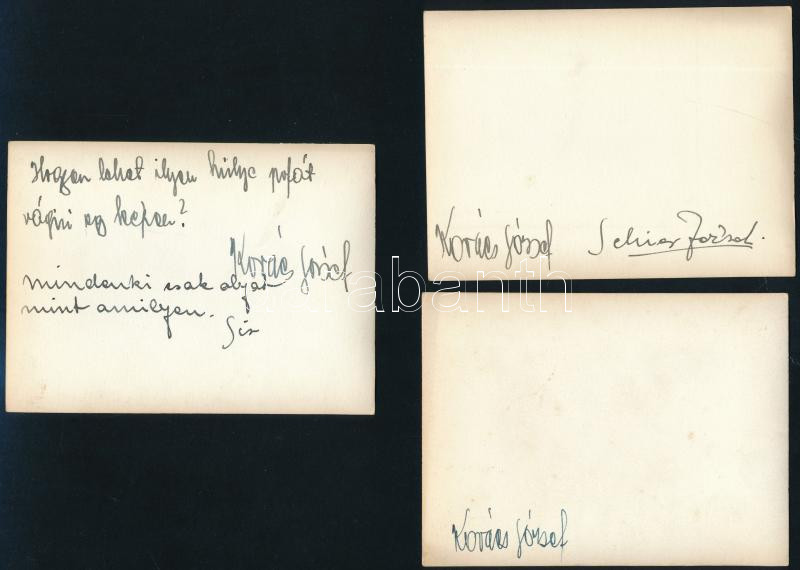 Hogyan lehet ilyen hülye pofát
vágni egy képen?
Kovács József
mindenki csak olyan
mint amilyen.
Kovács József
Kovács József
darabanth